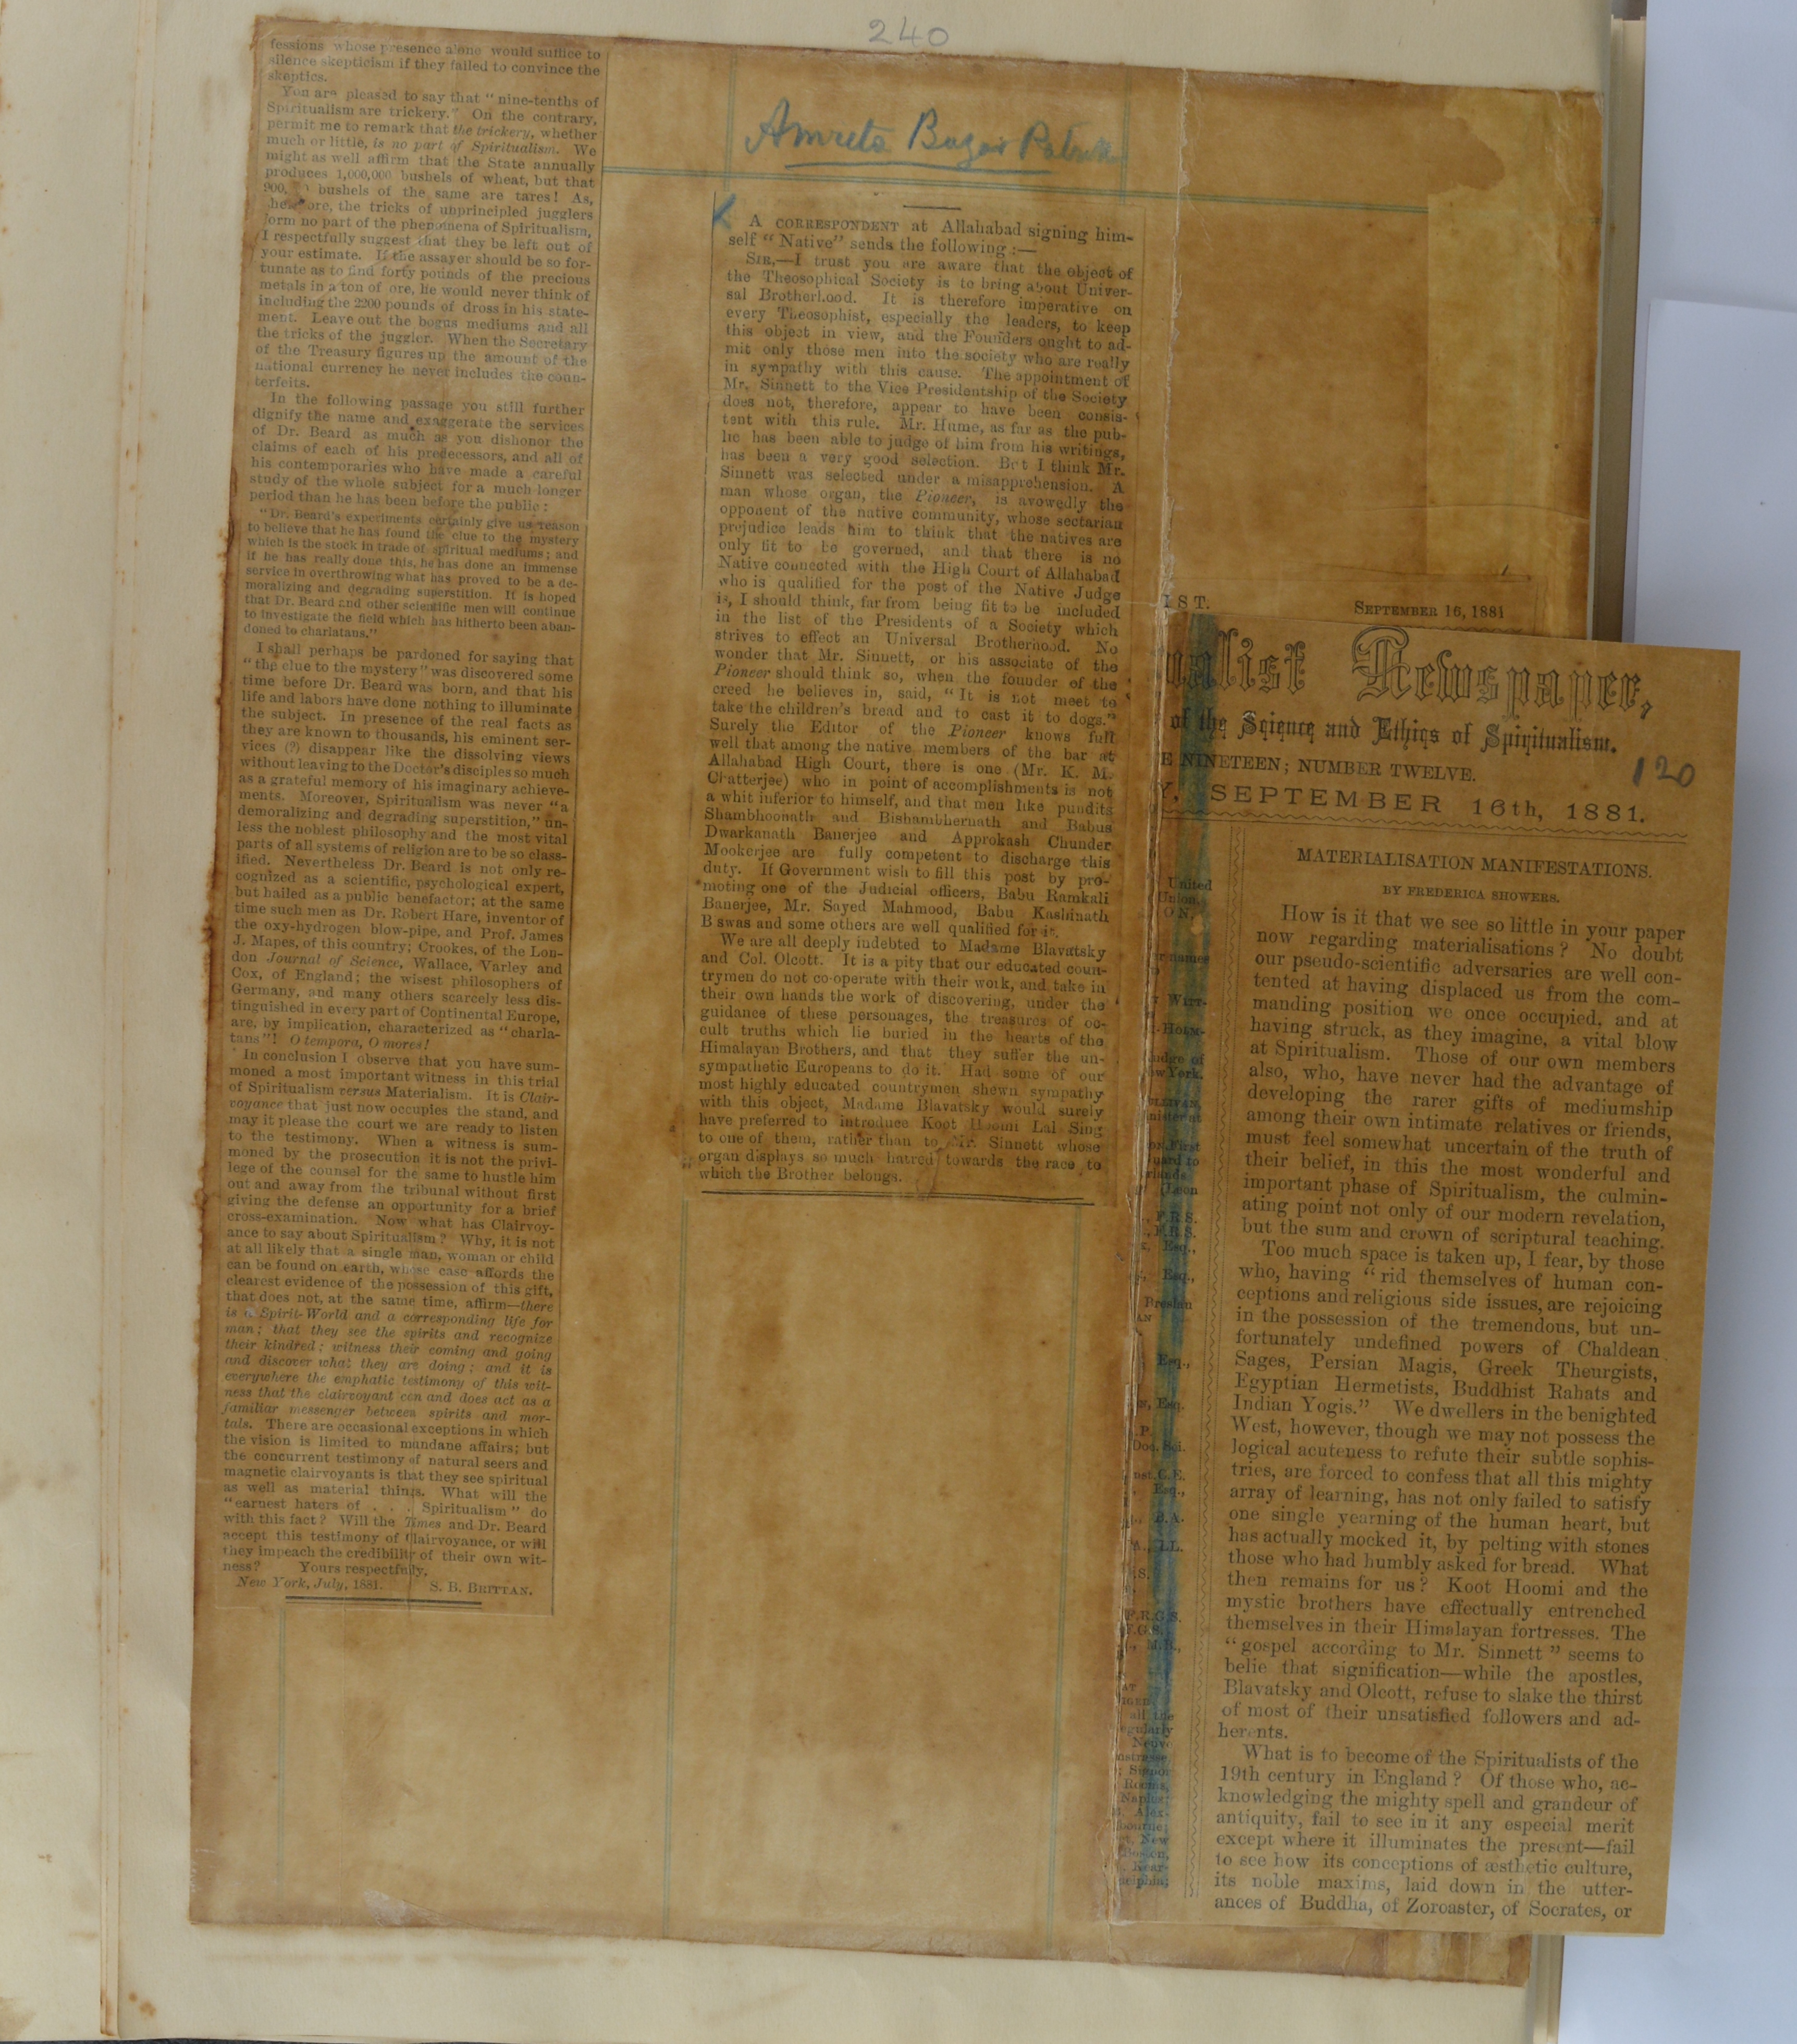 240
fessions whose presence alone would suffice to
silence skepticism if they failed to convince the
skeptics.
You are pleased to say that "nine-tenths of
Spiritualism are trickery." On the contrary,
permit me to remark that the trickery, whether
much or little, is no part of Spiritualism. We
might as well affirm that the State annually
produces 1,000,000 bushels of wheat, but that
900, bushels of the same are tares! As,
therefore, the tricks of unprincipled jugglers
form no part of the phenomena of Spiritualism,
I respectfully suggest that they be left out of
your estimate. If the assayer should be so for-
tunate as to find forty pounds of the precious
metals in a ton of ore, he would never think of
including the 2200 pounds of dross in his state-
ment. Leave out the bogus mediums and all
the tricks of the juggler. When the Secretary
of the Treasury figures up the amount of the
national currency he never includes the coun-
terfeits.
In the following passage you still further
dignify the name and exaggerate the services
of Dr. Beard as much as you dishonor the
claims of each of his predecessors, and all of
his contemporaries who have made a careful
study of the whole subject for a much longer
period than he has been before the public:
"Dr. Beard's experiments certainly give us reason
to believe that he has found the clue to the mystery
which is the stock in trade of spiritual mediums; and
if he has really done this, he has done an immense
service in overthrowing what has proved to be a de-
moralizing and degrading superstition. It is hoped
that Dr. Beard and other scientific men will continue
to investigate the field which has hitherto been aban-
doned to charlatans."
I shall perhaps be pardoned for saying that
"the clue to the mystery" was discovered some
time before Dr. Beard was born, and that his
life and labors have done nothing to illuminate
the subject. In presence of the real facts as
they are known to thousands, his eminent ser-
vices (?) disappear like the dissolving views
without leaving to the Doctor's disciples so much
as a grateful memory of his imaginary achieve-
ments. Moreover, Spiritualism was never "a
demoralizing and degrading superstition," un-
less the noblest philosophy and the most vital
parts of all systems of religion are to be so class-
ified. Nevertheless Dr. Beard is not only re-
cognized as a scientific, psychological expert,
but hailed as a public benefactor; at the same
time such men as Dr. Robert Hare, inventor of
the oxy-hydrogen blow-pipe, and Prof. James
J. Mapes, of this country; Crookes, of the Lon-
don Journal of Science, Wallace, Varley and
Cox, of England; the wisest philosophers of
Germany, and many others scarcely less dis-
tinguished in every part of Continental Europe,
are, by implication, characterized as "charla-
tans"! O tempora, O mores!
In conclusion I observe that you have sum-
moned a most important witness in this trial
of Spiritualism versus Materialism. It is Clair-
voyance that just now occupies the stand, and
may it please the court we are ready to listen
to the testimony. When a witness is sum-
moned by the prosecution it is not the privi-
lege of the counsel for the same to hustle him
out and away from the tribunal without first
giving the defense an opportunity for a brief
cross-examination. Now what has Clairvoy-
ance to say about Spiritualism? Why, it is not
at all likely that a single man, woman or child
can be found on earth, whose case affords the
clearest evidence of the possession of this gift,
that does not, at the same time, affirm—there
is a Spirit-World and a corresponding life for
man; that they see the spirits and recognize
their kindred; witness their coming and going
and discover what they are doing; and it is
everywhere the emphatic testimony of this wit-
ness that the clairvoyant can and does act as a
familiar messenger between spirits and mor-
tals. There are occasional exceptions in which
the vision is limited to mundane affairs; but
the concurrent testimony of natural seers and
magnetic clairvoyants is that they see spiritual
as well as material things. What will the
"earnest haters of . . . Spiritualism" do
with this fact? Will the Times and Dr. Beard
accept this testimony of Clairvoyance, or will
they impeach the credibility of their own wit-
ness? Yours respectfully,
New York, July, 1881. S. B. BRITTAN.
Amrita Bazar
A CORRESPONDENT at Allahabad signing him-
self "Native" sends the following:—
SIR,—I trust you are aware that the object of
the Theosophical Society is to bring about Univer-
sal Brotherhood. It is therefore imperative on
every Theosophist, especially the leaders, to keep
this object in view, and the Founders ought to ad-
mit only those men into the society who are really
in sympathy with this cause. The appointment of
Mr. Sinnett to the Vice Presidentship of the Society
does not, therefore, appear to have been consis-
tent with this rule. Mr. Hume, as far as the pub-
lic has been able to judge of him from his writings,
has been a very good selection. But I think Mr.
Sinnett was selected under a misapprehension. A
man whose organ, the Pioneer, is avowedly the
opponent of the native community, whose sectarian
prejudice leads him to think that the natives are
only fit to be governed, and that there is no
Native connected with the High Court of Allahabad
who is qualified for the post of the Native Judge
is, I should think, far from being fit to be included
in the list of the Presidents of a Society which
strives to effect an Universal Brotherhood. No
wonder that Mr. Sinnett, or his associate of the
Pioneer should think so, when the founder of the
creed he believes in, said, "It is not meet to
take the children's bread and to cast it to dogs."
Surely the Editor of the Pioneer knows full
well that among the native members of the bar at
Allahabad High Court, there is one (Mr. K. M.
Chatterjee) who in point of accomplishments is not
a whit inferior to himself, and that men like pundits
Shambhoonath and Bishambhernath and Babus
Dwarkanath Banerjee and Approkash Chunder
Mookerjee are fully competent to discharge this
duty. If Government wish to fill this post by pro-
moting one of the Judicial officers, Babu Ramkali
Banerjee, Mr. Sayed Mahmood, Babu Kashinath
Biswas and some others are well qualified for it.
We are all deeply indebted to Madame Blavatsky
and Col. Olcott. It is a pity that our educated coun-
trymen do not co-operate with their work, and take in
their own hands the work of discovering, under the
guidance of these personages, the treasures of oc-
cult truths which lie buried in the hearts of the
Himalayan Brothers, and that they suffer the un-
sympathetic Europeans to do it. Had some of our
most highly educated countrymen shewn sympathy
with this object, Madame Blavatsky would surely
have preferred to introduce Koot Hoomi Lal Sing
to one of them, rather than to Mr. Sinnett whose
organ displays so much hatred towards the race to
which the Brother belongs.
IST. SEPTEMBER 16, 1881
alist Newspaper,
of the Science and Ethics of Spiritualism.
E NINETEEN; NUMBER TWELVE.
120
Y, SEPTEMBER 16th, 1881.
United
Union.
ON,
names
WITT-
udge of
w York.
First
(Leon
F.R.S.
F.R.S.
Esq.,
Esq.,
Breslau
Esq.,
Esq.
Doc. Sci.
nst.C.E.
Esq.,
B.A.
LL.
F.R.G.S.
F.G.S.
M.B.,
all the
egularly
Rooms,
Naples;
New
MATERIALISATION MANIFESTATIONS.
BY FREDERICA SHOWERS.
How is it that we see so little in your paper
now regarding materialisations? No doubt
our pseudo-scientific adversaries are well con-
tented at having displaced us from the com-
manding position we once occupied, and at
having struck, as they imagine, a vital blow
at Spiritualism. Those of our own members
also, who, have never had the advantage of
developing the rarer gifts of mediumship
among their own intimate relatives or friends,
must feel somewhat uncertain of the truth of
their belief, in this the most wonderful and
important phase of Spiritualism, the culmin-
ating point not only of our modern revelation,
but the sum and crown of scriptural teaching.
Too much space is taken up, I fear, by those
who, having "rid themselves of human con-
ceptions and religious side issues, are rejoicing
in the possession of the tremendous, but un-
fortunately undefined powers of Chaldean
Sages, Persian Magis, Greek Theurgists,
Egyptian Hermetists, Buddhist Rahats and
Indian Yogis." We dwellers in the benighted
West, however, though we may not possess the
logical acuteness to refute their subtle sophis-
tries, are forced to confess that all this mighty
array of learning, has not only failed to satisfy
one single yearning of the human heart, but
has actually mocked it, by pelting with stones
those who had humbly asked for bread. What
then remains for us? Koot Hoomi and the
mystic brothers have effectually entrenched
themselves in their Himalayan fortresses. The
"gospel according to Mr. Sinnett" seems to
belie that signification—while the apostles,
Blavatsky and Olcott, refuse to slake the thirst
of most of their unsatisfied followers and ad-
herents.
What is to become of the Spiritualists of the
19th century in England? Of those who, ac-
knowledging the mighty spell and grandeur of
antiquity, fail to see in it any especial merit
except where it illuminates the present—fail
to see how its conceptions of æsthetic culture,
its noble maxims, laid down in the utter-
ances of Buddha, of Zoroaster, of Socrates, or